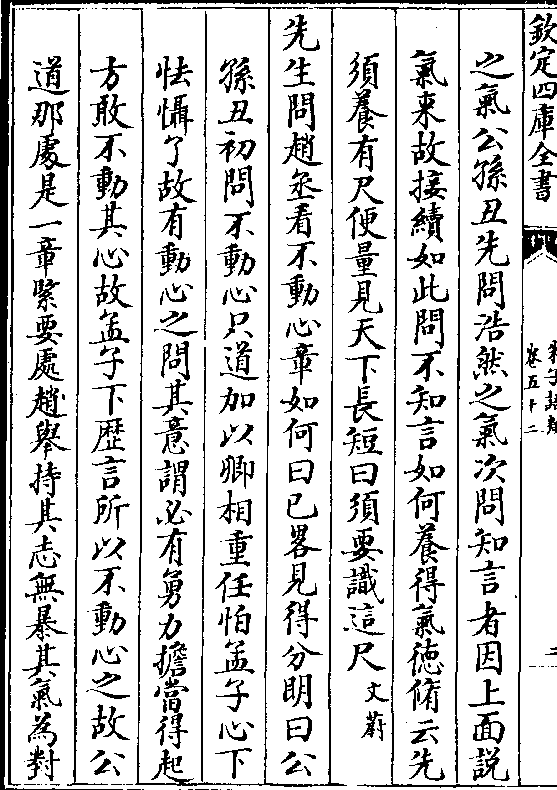 欽定四庫全書
朱子語類
卷五十二
之氣公孫丑先問浩然之氣次問知言者因上面說
氣來故接續如此問不知言如何養得氣德脩云先
須養有尺便量見天下長短曰須要識這尺文蔚
先生問趙丞看不動心章如何曰已畧見得分明曰公
孫丑初問不動心只道加以卿相重任怕孟子心下
怯懾了故有動心之問其意謂必有勇力擔當得起
方敢不動其心故孟子下歴言所以不動心之故公
道那處是一章緊要處趙舉持其志無暴其氣為對